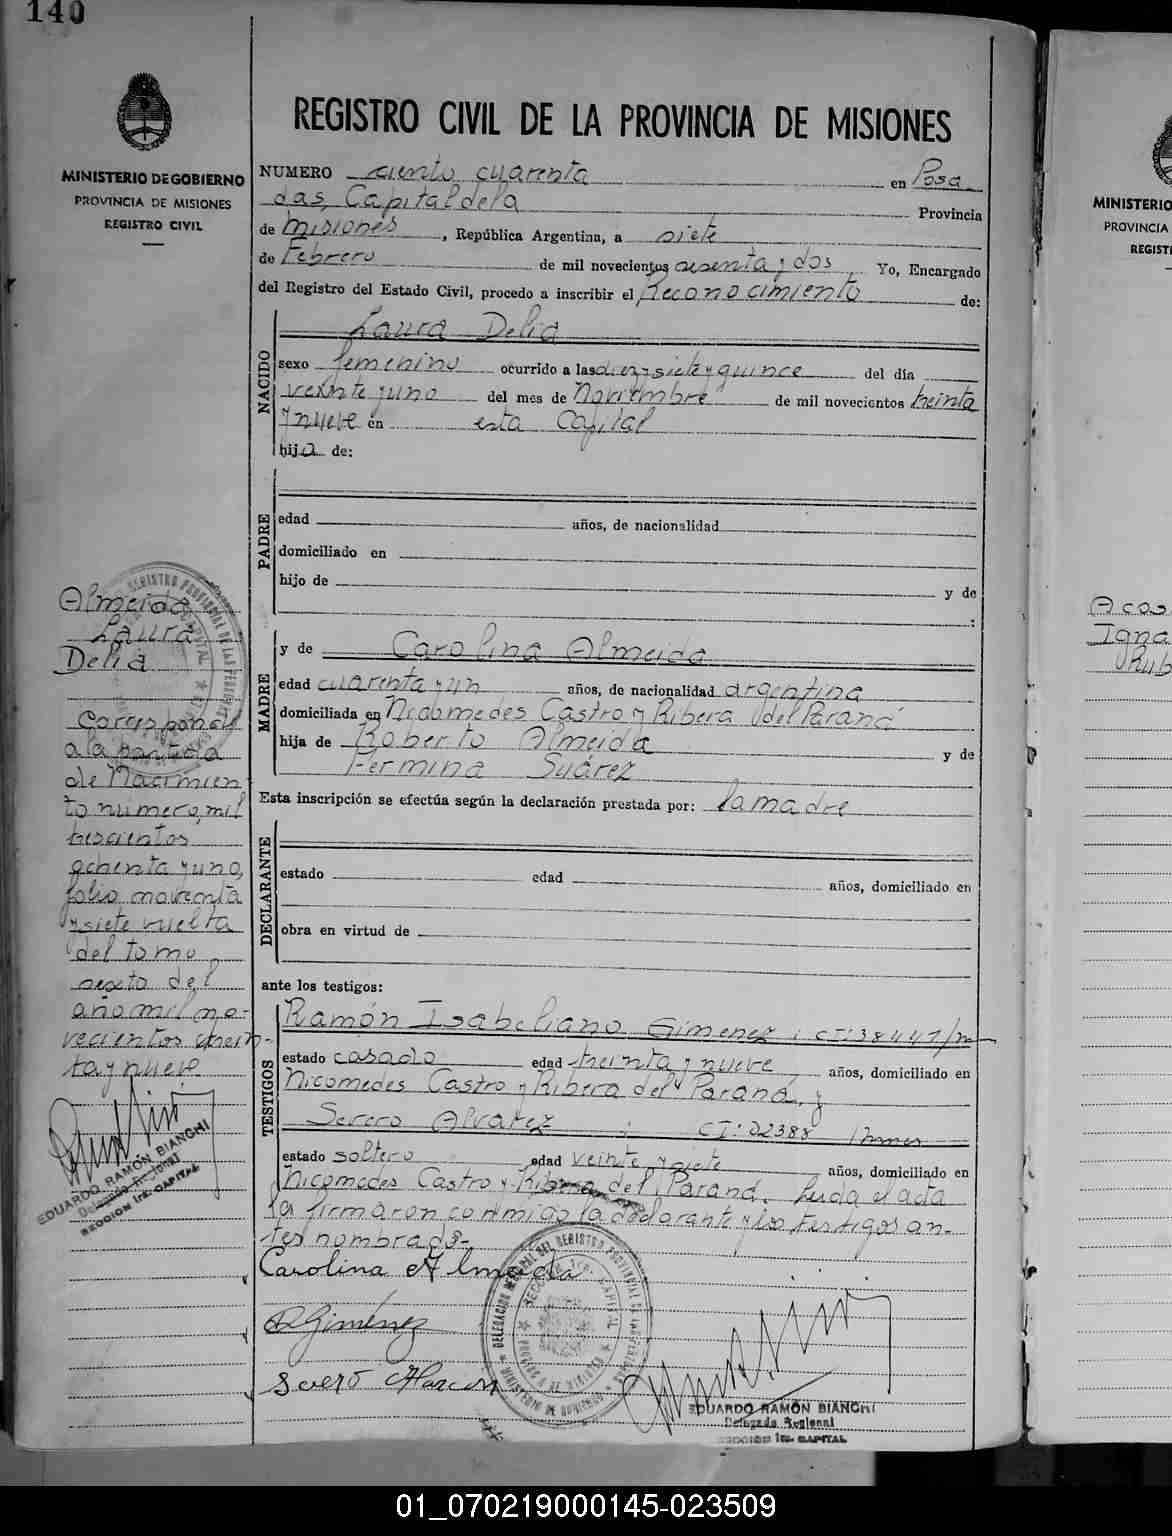 140
MINISTERIO DE GOBIERNO
PROVINCIA DE MISIONES
REGISTRO CIVIL
REGISTRO CIVIL DE LA PROVINCIA DE MISIONES
NUMERO ciento cuarenta en Posa-
das, Capital de la Provincia
de Misiones, República Argentina, a siete
de Febrero de mil novecientos sesenta y dos Yo, Encargado
del Registro del Estado Civil, procedo a inscribir el Reconocimiento de:
NACIDO
Laura Delia
sexo femenino ocurrido a las diez y siete y quince del día
veinte y uno del mes de Noviembre de mil novecientos treinta
y nueve en esta Capital
hija de:
PADRE
edad años, de nacionalidad
domiciliado en
hijo de y de
:
MADRE
y de Carolina Almeida
edad cuarenta y un años, de nacionalidad argentina
domiciliada en Nicomedes Castro y Ribera del Paraná
hija de Roberto Almeida y de
Fermina Suárez
Esta inscripción se efectúa según la declaración prestada por: la madre
DECLARANTE
estado edad años, domiciliado en
obra en virtud de
ante los testigos:
TESTIGOS
Ramón Isabeliano Gimenez, CI: 38447/m
estado casado edad treinta y nueve años, domiciliado en
Nicomedes Castro y Ribera del Paraná, y
Severo Alvarez CI: 22388
estado soltero edad veinte y siete años, domiciliado en
Nicomedes Castro y Ribera del Paraná. Leída el acta
la firmaron conmigo la declarante y los testigos an-
tes nombrados-
Carolina Almeida
R Giménez
EDUARDO RAMÓN BIANCHI
Delegado Regional
SECCION 1ra. CAPITAL
Almeida
Laura
Delia
Corresponde
a la partida
de Nacimien
to número, mil
trescientos
ochenta y uno,
folio noventa
y siete vuelta
del tomo
sexto del
año mil no-
vecientos trein-
ta y nueve
EDUARDO RAMÓN BIANCHI
Delegado Regional
SECCION 1ra. CAPITAL
MINISTERIO
PROVINCIA
REGIST
Acos
Igna
Rub
01_070219000145-023509